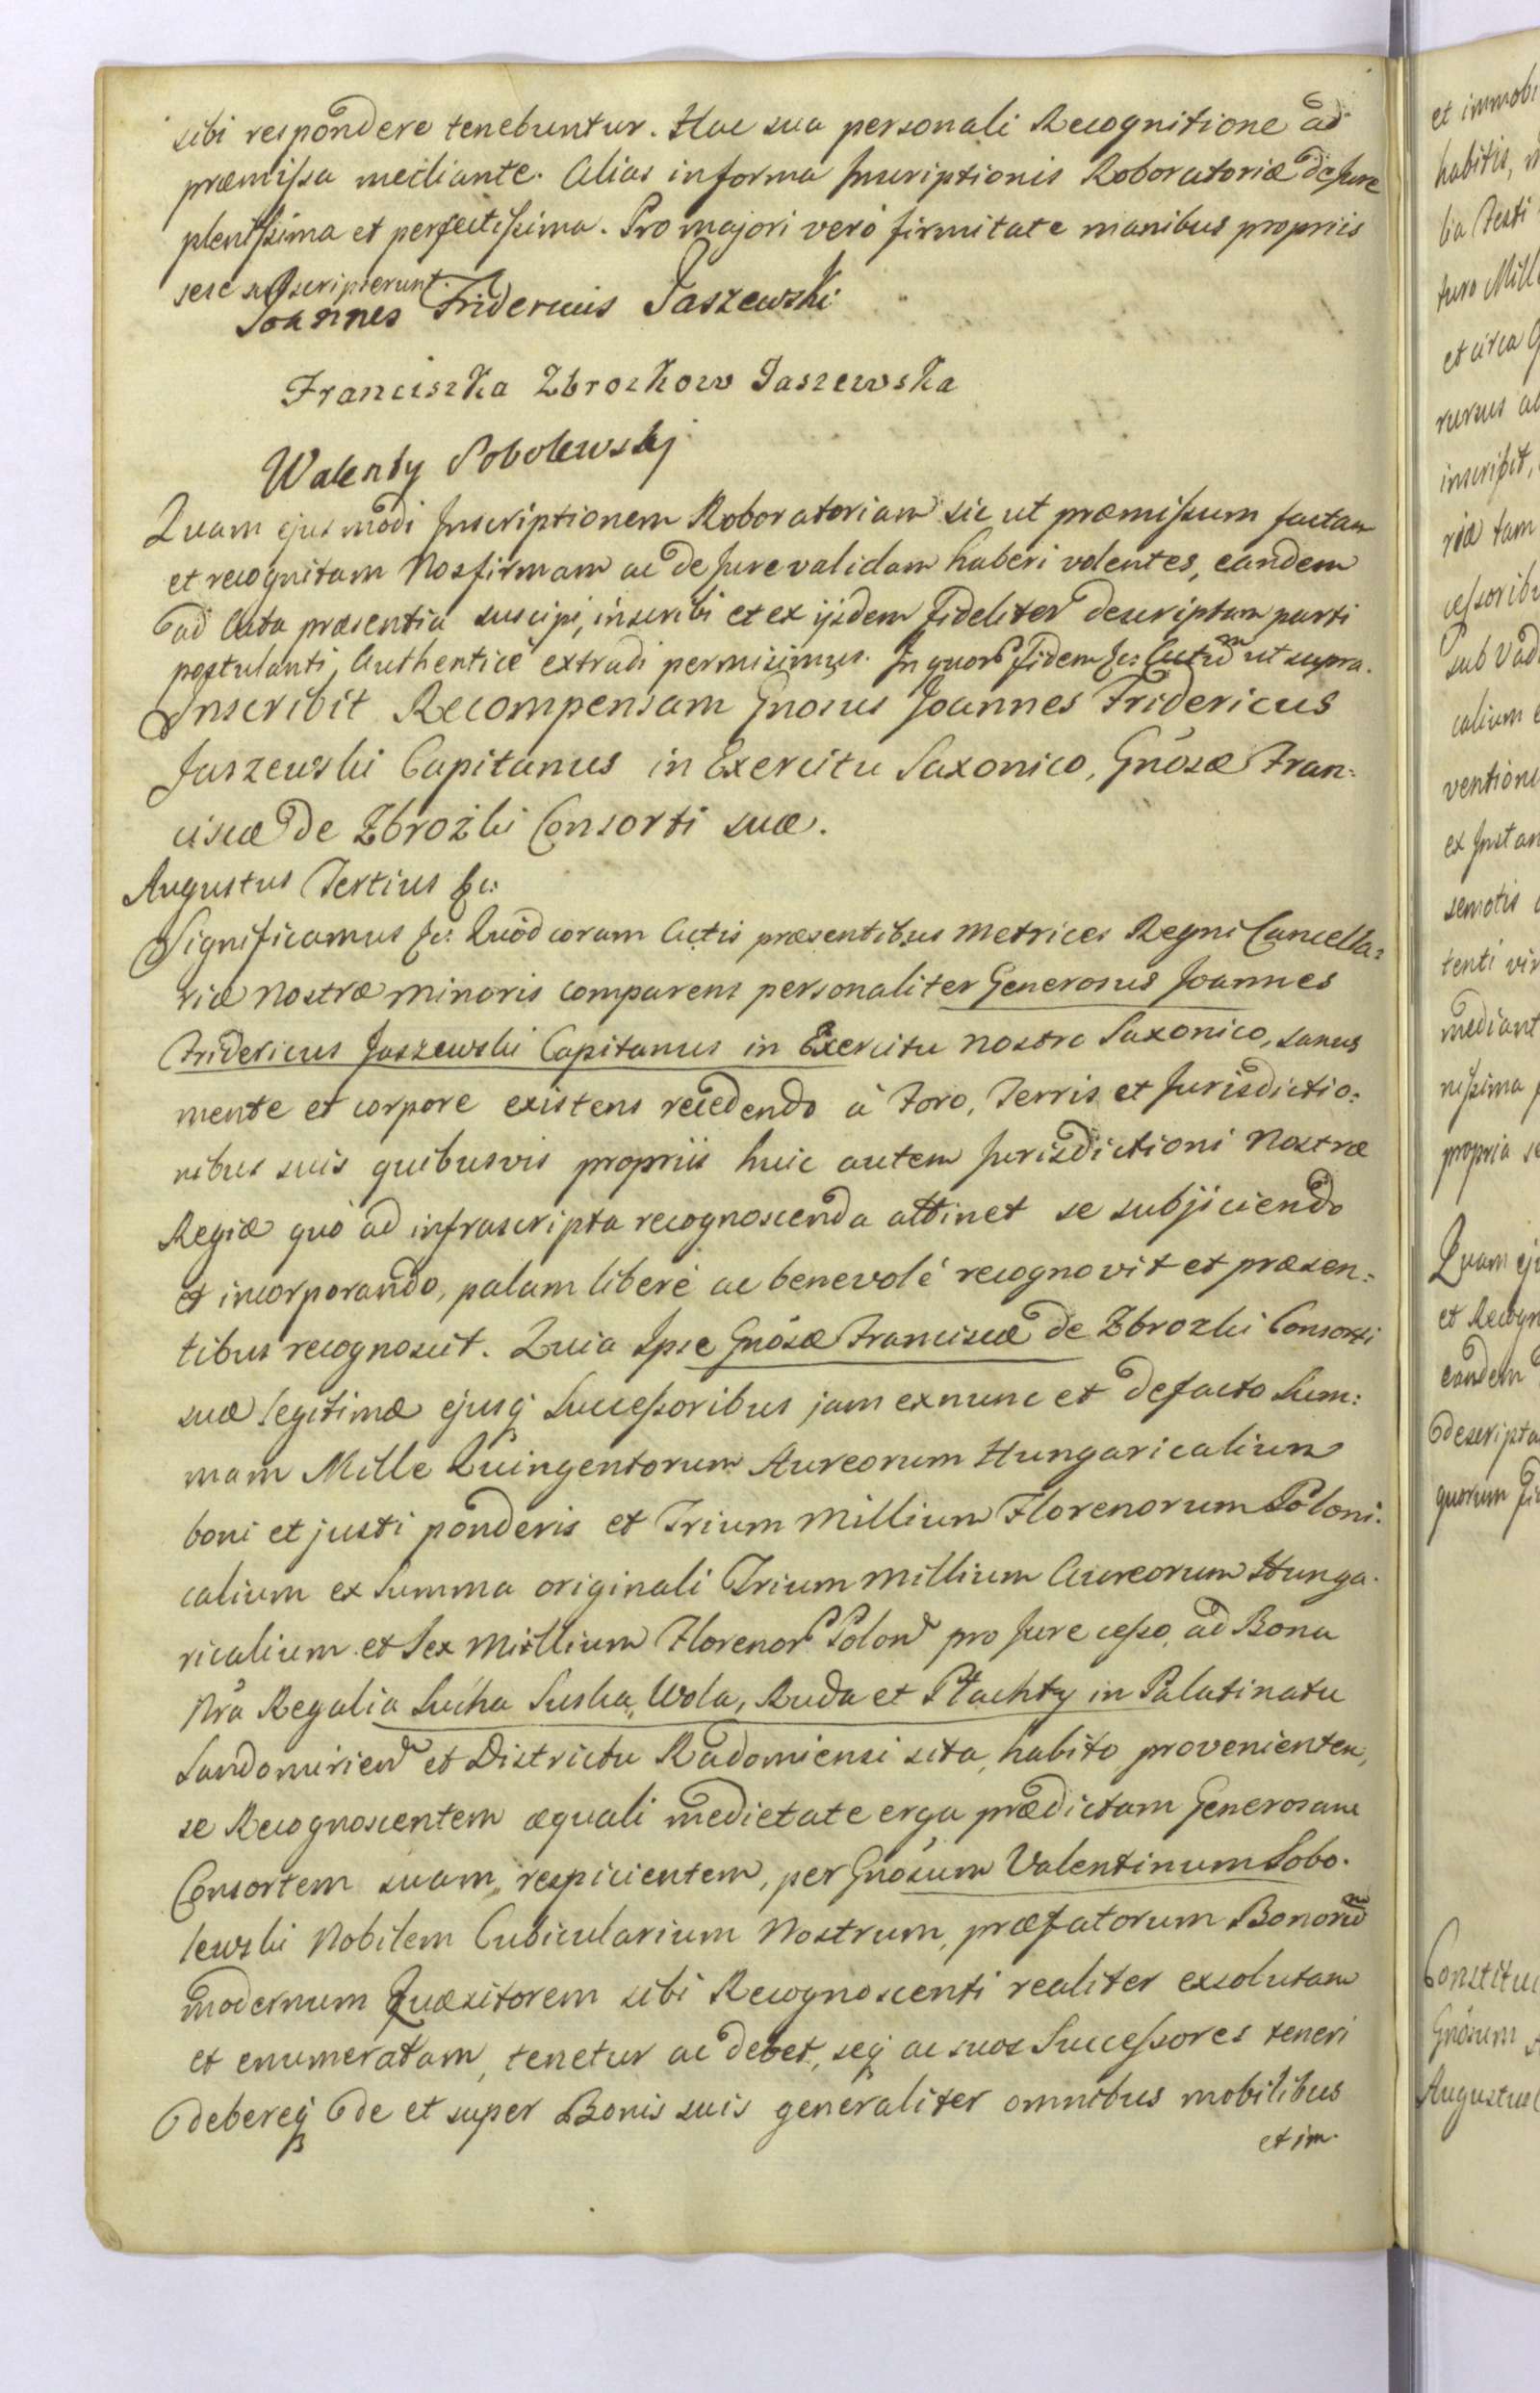 sibi respondere tenebuntur. Hac sua personali Recognitione ad
præmissa mediante. Alias in forma Inscriptionis Roboratoriæ de Jure
plenissima et perfectissima. Pro majori verò firmitate manibus propriis
sese subscripserunt.
Joannes Fridericus Jaszewski
Franciszka Zbrozkow Jaszewska
Walenty Sobolewskj
Quam ejusmodi Inscriptionem Roboratoriam sic ut præmissum factam
et recognitam Nos firmam ac de Jure validam haberi volentes, eandem
ad Acta præsentia suscipi, inscribi et ex ijsdem fideliter descriptam parti
postulanti, Authenticè extradi permisimus. In quorũ fidem &c: Actũm ut supra.
Inscribit Recompensam Gnosus Joannes Fridericus
Jaszewski Capitanus in Exercitu Saxonico, Gnosæ Fran:
ciscæ de Zbrozki Consorti suæ.
Augustus Tertius &c:
Significamus &c: Quòd coram Actis præsentibus Metrices Regni Cancella:
riæ Nostræ Minoris comparens personaliter Generosus Joannes
Fridericus Jaszewski Capitanus in Exercitu Nostro Saxonico, sanus
mente et corpore existens recedendo à Foro, Terris et Jurisdictio:
nibus suis quibusvis propriis huic autem Jurisdictioni Nostræ
Regiæ quò ad infrascripta recognoscenda attinet se subjiciendo
et incorporando, palam liberè ac benevolè recognovit et præsen:
tibus recognoscit. Quia Ipse Gnosæ Franciscæ de Zbrozki Consorti
suæ legitimæ ejusq; Successoribus jam ex nunc et de facto Sum:
mam Mille Quingentorum Aureorum Hungaricalium
boni et justi ponderis et Trium Millium Florenorum Poloni:
calium ex Summa originali Trium Millium Aureorum Hunga:
ricalium et Sex Millium Florenorũ Polonũ pro Jure cesso, ad Bona
Nrã Regalia Sucha Suska, Wola, Ruda et Płachty in Palatinatu
Sandomirienũ et Districtu Radomiensi sita, habito provenienten,
se Recognoscentem æquali medietate erga prædictam Generosam
Consortem suam, respicientem, per Gnosum Valentinum Sobo:
lewski Nobilem Cubicularium Nostrum, præfatorum Bonorũm
modernum Quæsitorem sibi Recognoscenti realiter exsolutam
et enumeratam, tenetur ac debet, seq; ac suos Successores teneri
debereq; de et super Bonis suis generaliter omnibus mobilibus
et im-
et immobi
habitis,
turo Mill
et circa
rursus
inscribit,
riæ tam
cessoribu
sub Vad
calium
ventione
ex Instan
semotis
tenti vir
mediant
nissima
propria
Quam ej
et Recogn
eandem
descripta
quorum
Constitui
Gnosum
Augustus